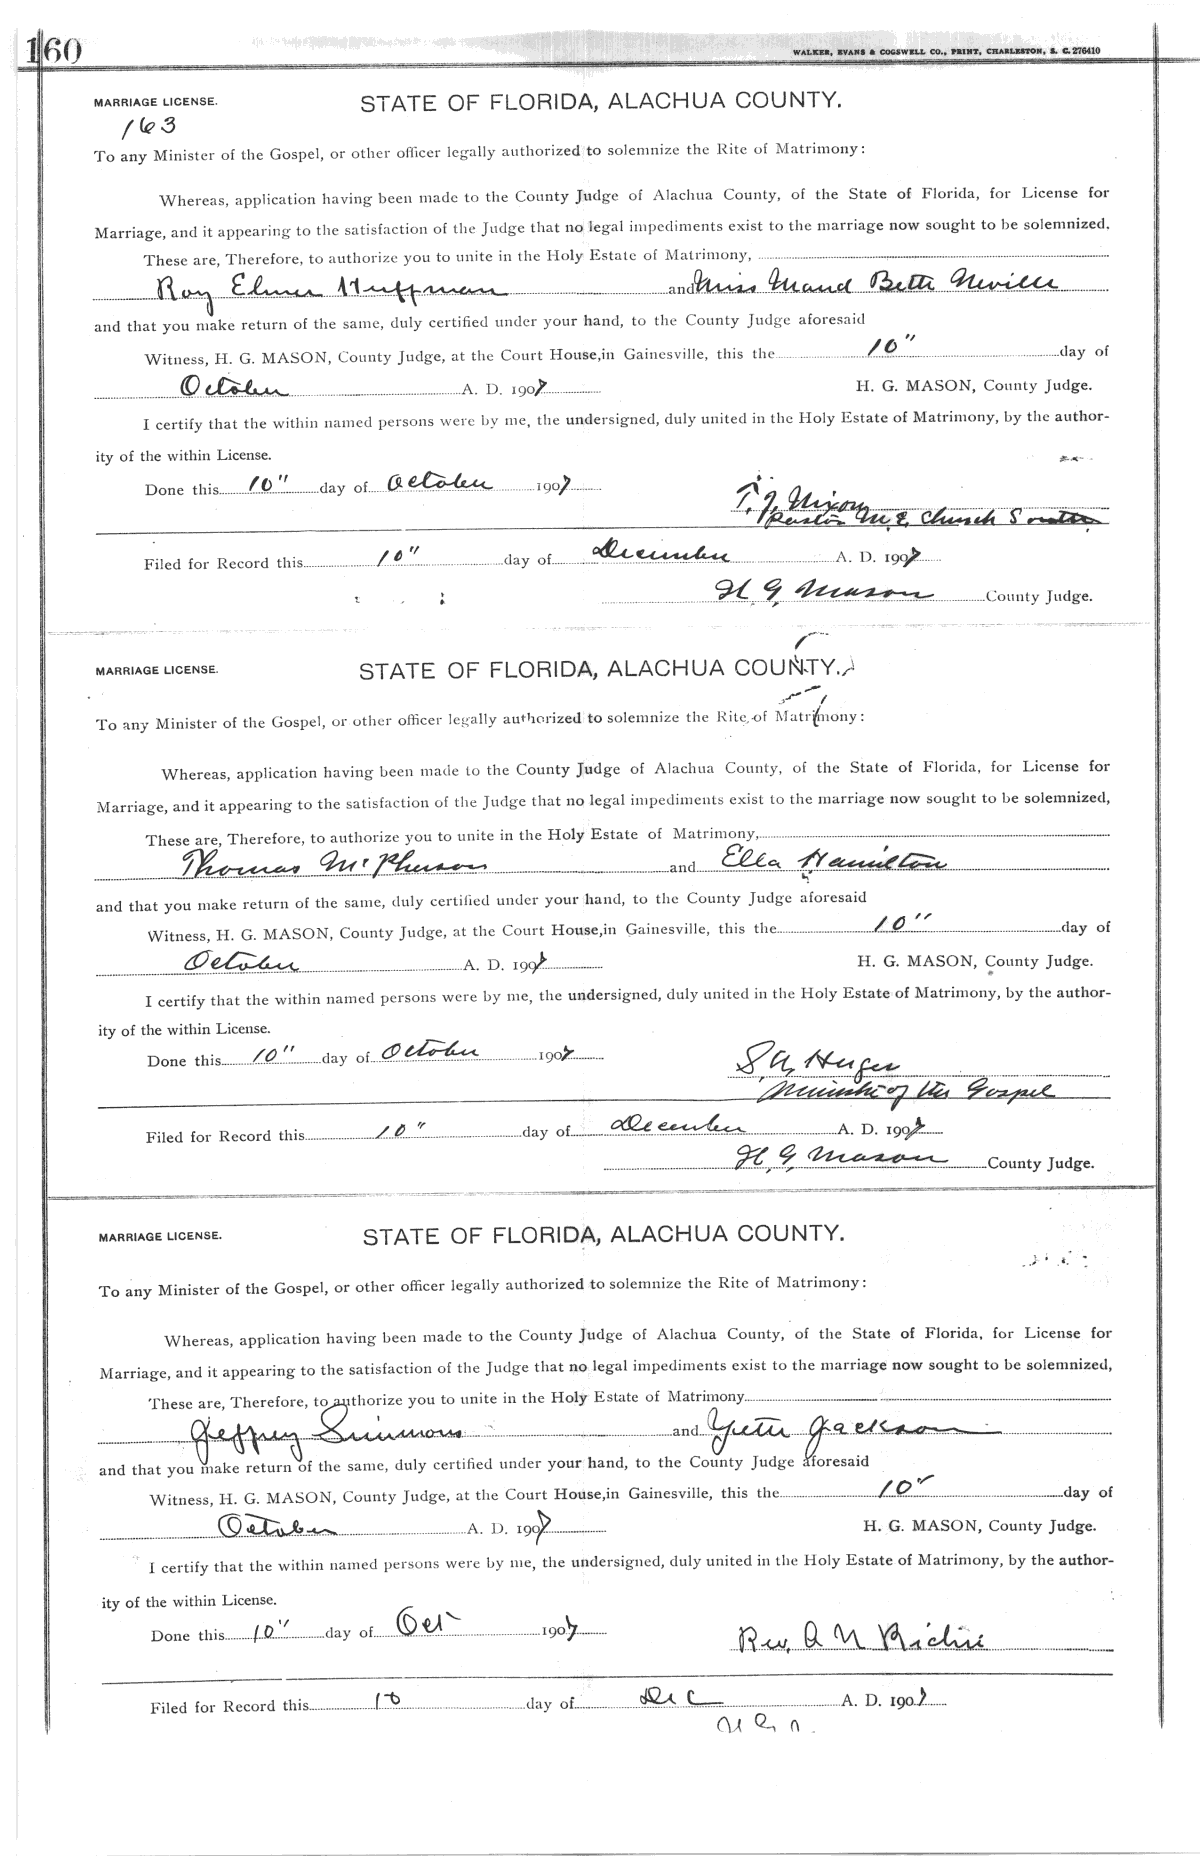 160
WALKER, EVANS & COGSWELL CO., PRINT, CHARLESTON, S. C. 276410
MARRIAGE LICENSE. STATE OF FLORIDA, ALACHUA COUNTY.
163
To any Minister of the Gospel, or other officer legally authorized to solemnize the Rite of Matrimony:
Whereas, application having been made to the County Judge of Alachua County, of the State of Florida, for License for
Marriage, and it appearing to the satisfaction of the Judge that no legal impediments exist to the marriage now sought to be solemnized.
These are, Therefore, to authorize you to unite in the Holy Estate of Matrimony,
Roy Elmer Huffman and Miss Maud Bette Neville
and that you make return of the same, duly certified under your hand, to the County Judge aforesaid
Witness, H. G. MASON, County Judge, at the Court House, in Gainesville, this the 10" day of
October A. D. 1907 H. G. MASON, County Judge.
I certify that the within named persons were by me, the undersigned, duly united in the Holy Estate of Matrimony, by the author-
ity of the within License.
Done this 10" day of October 1907
T. J. Nixon
Pastor M. E. Church South
Filed for Record this 10" day of December A. D. 1907
H. G. Mason County Judge.
MARRIAGE LICENSE. STATE OF FLORIDA, ALACHUA COUNTY.
To any Minister of the Gospel, or other officer legally authorized to solemnize the Rite of Matrimony:
Whereas, application having been made to the County Judge of Alachua County, of the State of Florida, for License for
Marriage, and it appearing to the satisfaction of the Judge that no legal impediments exist to the marriage now sought to be solemnized,
These are, Therefore, to authorize you to unite in the Holy Estate of Matrimony,
Thomas McPherson and Ella Hamilton
and that you make return of the same, duly certified under your hand, to the County Judge aforesaid
Witness, H. G. MASON, County Judge, at the Court House, in Gainesville, this the 10" day of
October A. D. 1907 H. G. MASON, County Judge.
I certify that the within named persons were by me, the undersigned, duly united in the Holy Estate of Matrimony, by the author-
ity of the within License.
Done this 10" day of October 1907
S. A. Huger
Minister of the Gospel
Filed for Record this 10" day of December A. D. 1907
H. G. Mason County Judge.
MARRIAGE LICENSE. STATE OF FLORIDA, ALACHUA COUNTY.
To any Minister of the Gospel, or other officer legally authorized to solemnize the Rite of Matrimony:
Whereas, application having been made to the County Judge of Alachua County, of the State of Florida, for License for
Marriage, and it appearing to the satisfaction of the Judge that no legal impediments exist to the marriage now sought to be solemnized,
These are, Therefore, to authorize you to unite in the Holy Estate of Matrimony
Jeffrey Simmons and Jackson
and that you make return of the same, duly certified under your hand, to the County Judge aforesaid
Witness, H. G. MASON, County Judge, at the Court House, in Gainesville, this the 10" day of
October A. D. 1907 H. G. MASON, County Judge.
I certify that the within named persons were by me, the undersigned, duly united in the Holy Estate of Matrimony, by the author-
ity of the within License.
Done this 10" day of Oct 1907
Rev. A N Richie
Filed for Record this 10 day of Dec A. D. 1907